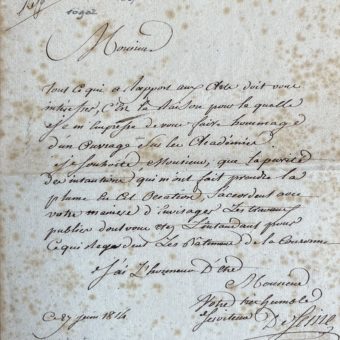 Monsieur
Tout ce qui a rapport aux Arts doit vous
intéresser, C'est la raison pour laquelle
Je m'empresse de vous faire hommage
d'un Ouvrage Sur les Académies.
Je souhaite Monsieur, que la pureté
des intentions qui m'ont fait prendre la
plume en cet Occasion, s'accordent avec
votre maniere d'envisager Les travaux
publics dont vous etes L'intendant pour
Ce qui de la Couronne
J'ai L'honneur D'être
Monsieur
Votre très humble
Serviteur De Seine
Ce 27 juin 1814